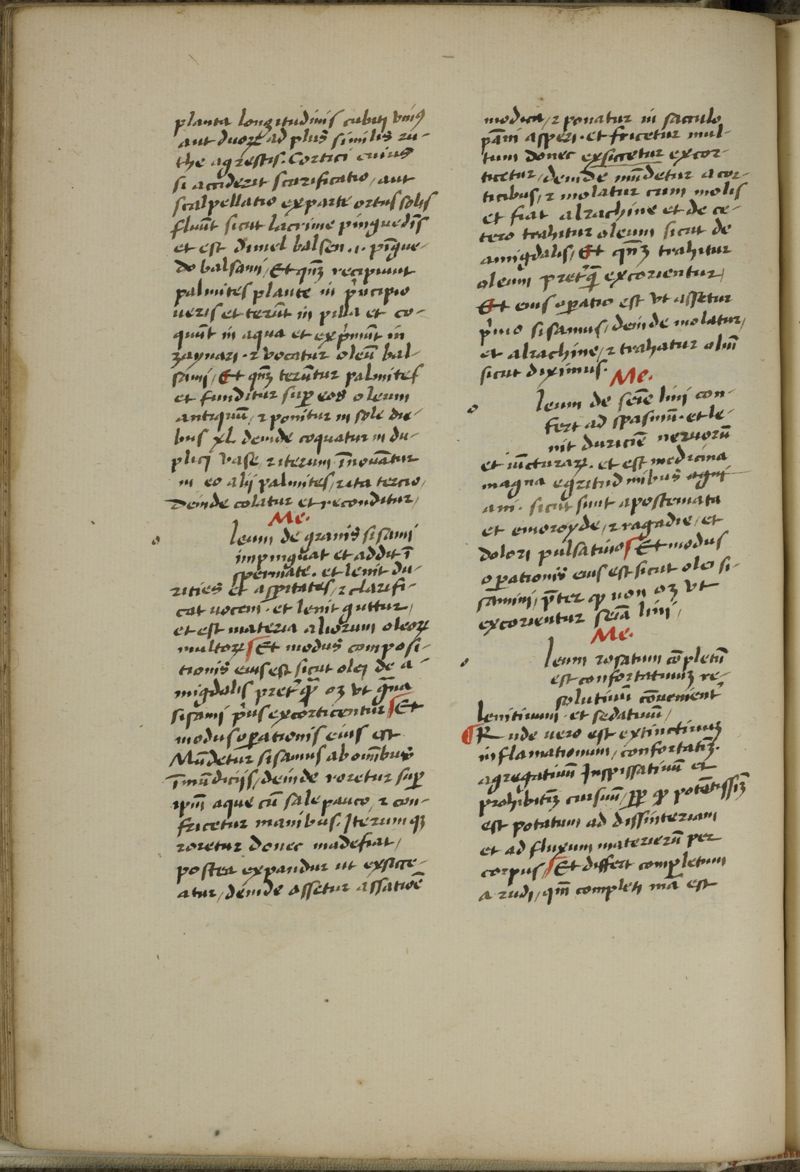 planta longitudinis cubiti vniꝰ
aut duoꝝ ad plus similis ru-
the agrestis. Cortici cuius
si acciderit scarificatio, aut
scalpellatio ex parte ortus solis
fluūt sicut lacrime pinguedīs
et est dimel balsen .i. pīgue-
do balsami, Et qñꝫ recipiunt
palmites plante in pͥncipio
ueris et terūt in pilla et co-
quūt in aqua et expͥmūt in
et vocatur oleū bal-
sami, Et qñꝫ terūtur palmites
et funditur suꝑ eos oleum
antiquū, ⁊ ponitur in sole die-
bus xl deinde coquatur in du-
plici vase ⁊ iterum īnouātur
in eo alij palmites, ⁊ ita tercio,
Deinde colatur et reconditur,
Me.
o leum de granis sisami
impinguat et addit ī
spermate. et lenit du-
rities et asꝑitates, ⁊ clarifi-
cat uocem. et lenit guttur,
et est materia aliorum oleoꝝ
multoꝝ Et modus composi-
tionis eius est sicut olei de a-
migdalis pretͬꝙ oꝫ vt gͣna
sisami pͥus excorticentur Et
modus oꝑationis eius est
Mūdetur sisamus ab omībus
īmūdicijs, deinde roretur suꝑ
ipm̄ aque cū sale pauco, ⁊ con-
fricetur manibus. Iterumqꝫ
roretur donec madefiat,
postea expandur ut exsicce-
atur, deinde assetur assatiōe
modica, ⁊ ponatur in saculo
pāni asperi. et fricetur mul-
tum donec exsiccetur excor-
ticetur, deinde mūdetur a cor-
ticibus, ⁊ molatur cum molis
et fiat alrachine et de ce-
tero trahitur oleum sicut de
amigdalis, Et qñꝫ trahitur
oleum pretͬꝙ excorientur,
Et eius oꝑatio est vt assetur
pͥmo sisamus, deinde molatur,
et alrachine, ⁊ trahatur olm̄
sicut diximus.
Me.
o leum de semīe lini con-
fert ad spasmū. et le-
nit duriciē neruorū
et iūcturaꝝ. et est medicina
magna egritudinibus
am. sicut sunt apostemata
et emoroyde, ⁊ ragadie, et
dolori pulsatiuo Et modus
oꝑationis eius est sicut olei si-
samini, pͬter ꝙ non oꝫ vt
excorientur semīa lini,
Me.
o leum rosatum cōpletū
est confortatiuuꝫ re-
solutiuū cōueniens
lenitiuum. et sedatiuū,
Rude uero est extinctiuuꝫ
inflamationum, confortatiū.
agregatiuū Inspissatiuū et
prohibitiū cursuū, ꝓꝑ ꝙ potētissīꝫ
est potatum ad dissinteriam
et ad fluxum materierū per
corpus, Et differt completum
a rudi, qm̄ completi mā est